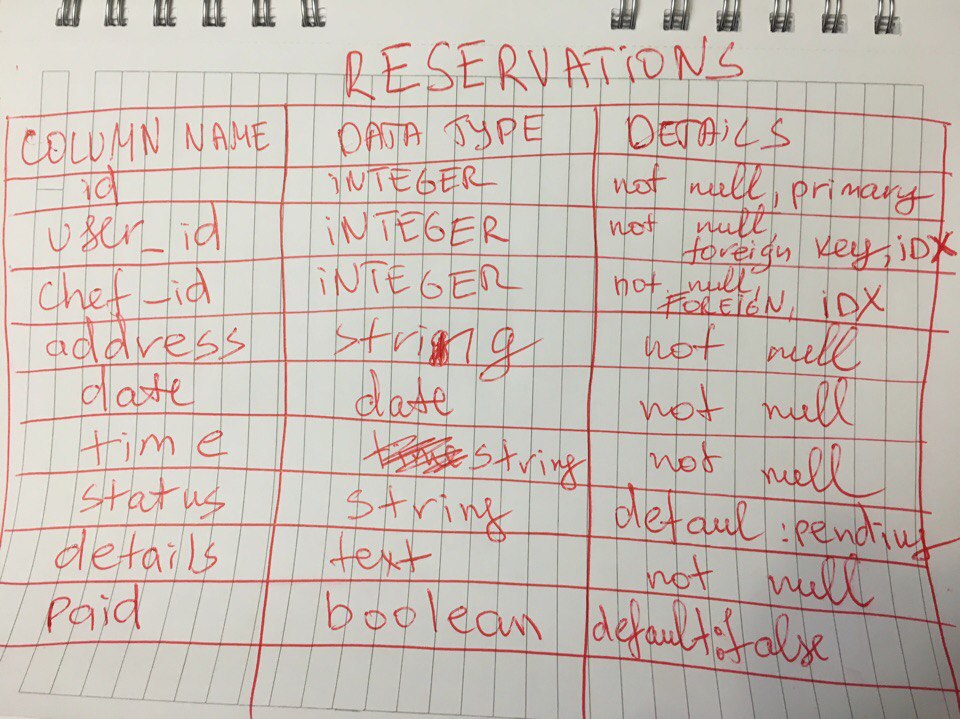 RESERVATIONS
COLUMN NAME DATA TYPE DETAILS
id iNTEGER not null, primary
user_id iNTEGER not null, foreign key, iDX
chef_id iNTEGER not null, FOREIGN, iDX
address string not null
date date not null
time string not null
status string defaul :pending
details text not null
paid boolean default: false